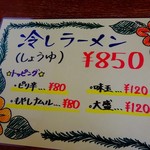 冷しラーメン
(しょうゆ) ¥850
☆トッピング☆
・ピリ辛…¥80 ・味玉…¥120
・もやしナムル…¥80 ・大盛…¥120